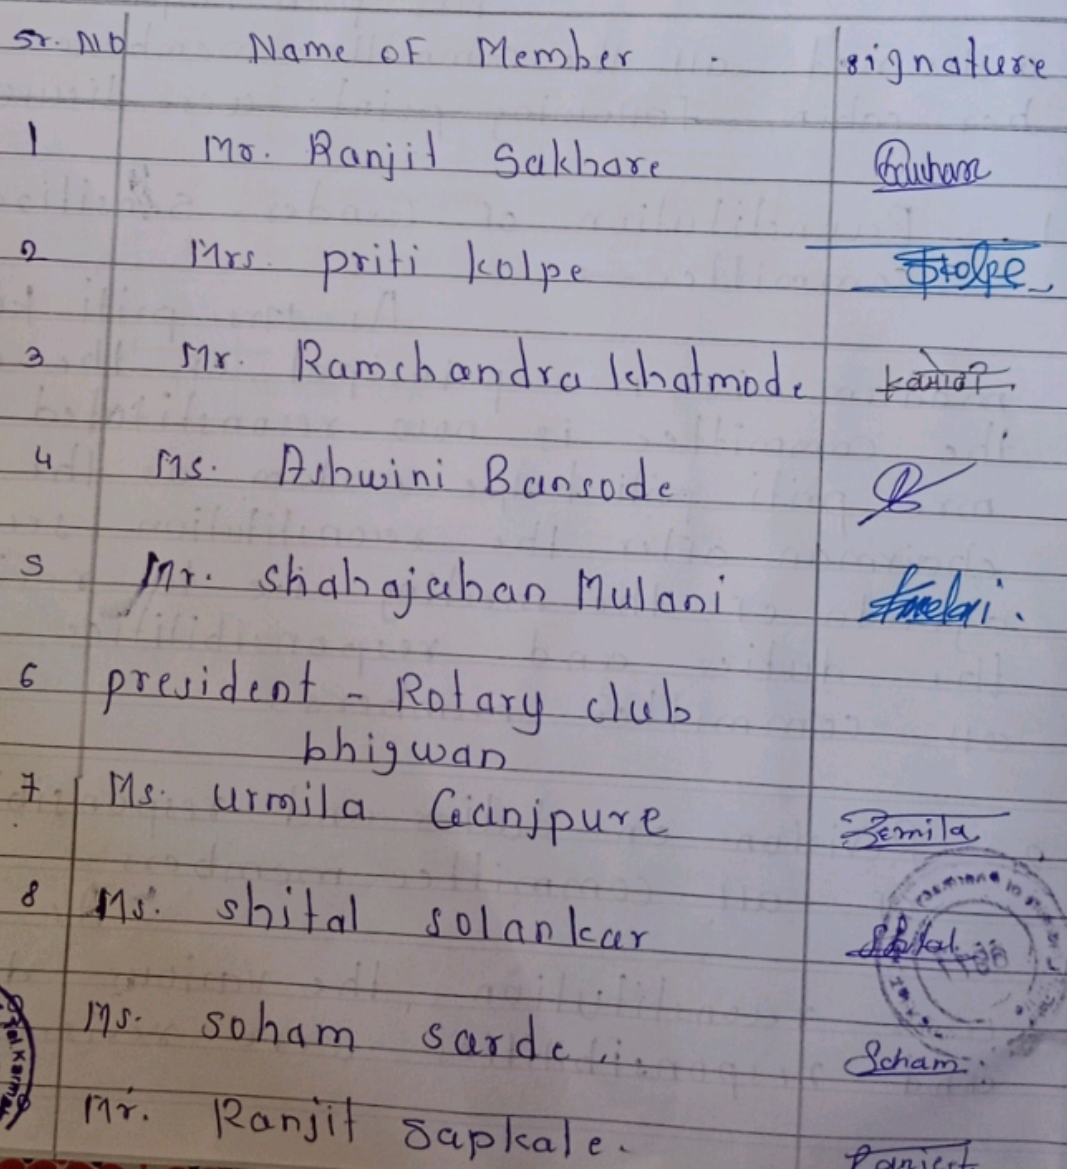 Sr. No Name of Member signature
1 Mr. Ranjit Sakhare
2 Mrs. priti kolpe kolpe
3 Mr. Ramchandra Khatmode
4 Ms. Ashwini Bansode
5 Mr. Shahajahan Mulani
6 president - Rotary club
bhigwan
7 Ms. Urmila Ganjpure Urmila
8 Ms. shital solankar Shital
Ms. soham sarde Soham
Mr. Ranjit Sapkale. Ranjit